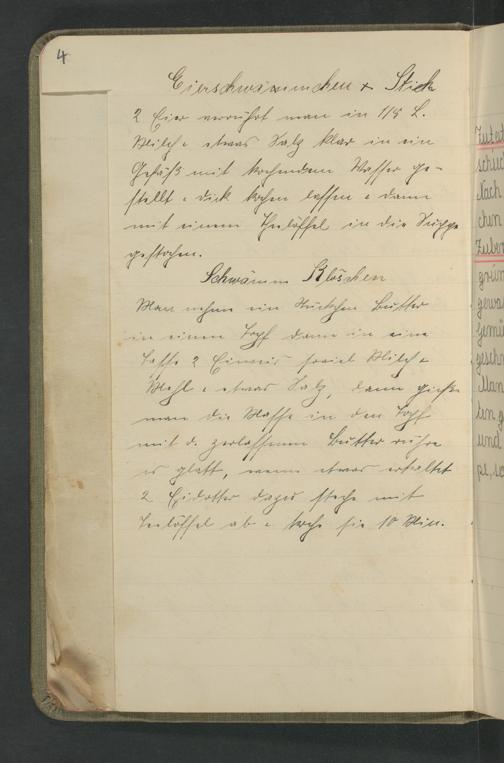 4
Eierschwämmchen + Stich
2 Eier verrührt man in 1/5 L.
Milch + etwas Salz klar in ein
Gefäß mit kochendem Wasser ge-
stellt + dick kochen lassen + dann
mit einem Theelöffel in die Suppe
gestochen.
Schwämm Klöschen
Man nehme ein Stückchen Butter
in einen Topf dann in eine
Tasse 2 Eiweis soviel Milch +
Mehl + etwas Salz, dann gieße
man die Masse in den Topf
mit d. zerlassenen Butter rühre
es glatt, wenn etwas erkaltet
2 Eidotter dazu steche mit
Teelöffel ab + koche sie 10 Min.
Nach
chen
und